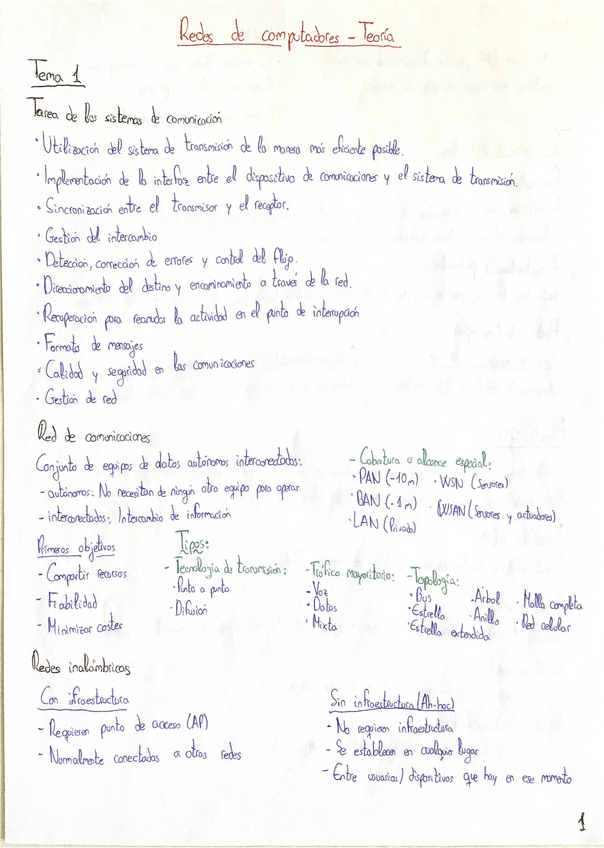 Redes de computadores - Teoría
Tema 1
Tarea de los sistemas de comunicación
· Utilización del sistema de transmisión de la manera más eficiente posible.
· Implementación de la interfaz entre el dispositivo de comunicaciones y el sistema de transmisión.
· Sincronización entre el transmisor y el receptor.
· Gestión del intercambio
· Detección, corrección de errores y control del flujo.
· Direccionamiento del destino y encaminamiento a través de la red.
· Recuperación para reanudar la actividad en el punto de interrupción
· Formato de mensajes
· Calidad y seguridad en las comunicaciones
· Gestión de red
Red de comunicaciones
Conjunto de equipos de datos autónomos interconectados:
- autónomos: No necesitan de ningún otro equipo para operar
- interconectados: Intercambio de información
- Cobertura o alcance especial:
· PAN (-10m) · WSN (Sensores)
· BAN (-1m) · WSAN (Sensores y actuadores)
· LAN (Privada)
Primeros objetivos
- Compartir recursos
- Fiabilidad
- Minimizar costes
Tipos:
- Tecnología de transmisión:
· Punto a punto
· Difusión
- Tráfico mayoritario:
· Voz
· Datos
· Mixta
- Topología:
· Bus · Árbol · Malla completa
· Estrella · Anillo · Red celular
· Estrella extendida
Redes inalámbricas
Con infraestructura
- Requieren punto de acceso (AP)
- Normalmente conectadas a otras redes
Sin infraestructura (Ah-hoc)
- No requieren infraestructura
- Se establecen en cualquier lugar
- Entre usuarios/dispositivos que hay en ese momento
1